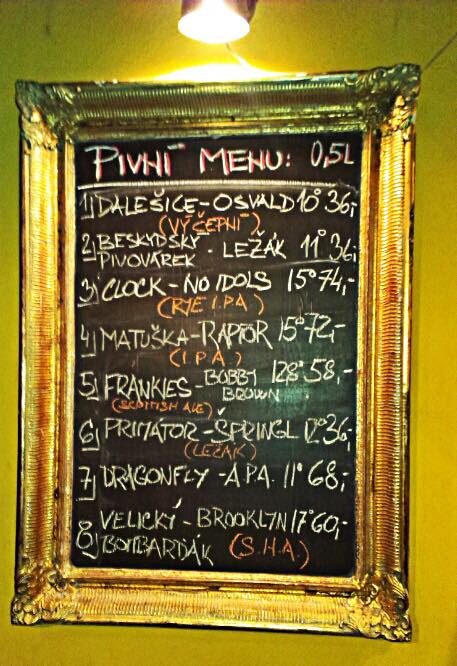 PIVNÍ MENU: 0,5L
1) DALEŠICE-OSVALD 10° 36,-
(VÝČEPNÍ)
2) BESKYDSKÝ PIVOVÁREK - LEŽÁK 11° 36,-
3) CLOCK - NO IDOLS 15° 74,-
(RYE I.P.A)
4) MATUŠKA-RAPTOR 15° 72,-
(I P A)
5) FRANKIES - BOBBY BROWN 12,8° 58,-
(SCOTTISH ALE)
6) PRIMÁTOR-ŠPRINGL 12° 36,-
(LEŽÁK)
7) DRAGONFLY - A.P.A. 11° 68,-
8) VELICKÝ - BROOKLYN 17° 60,-
BOMBARĎÁK (S.H.A.)